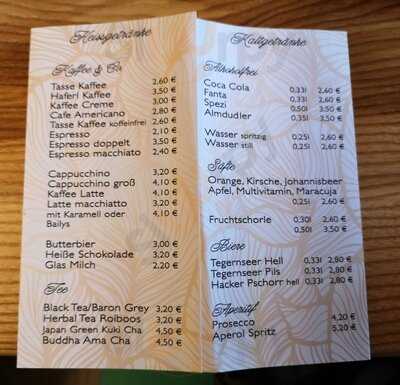 Heissgetränke
Kaffee & Co
Tasse Kaffee 2,60 €
Haferl Kaffee 3,50 €
Kaffee Creme 3,00 €
Cafe Americano 2,80 €
Tasse Kaffee koffeinfrei 2,60 €
Espresso 2,10 €
Espresso doppelt 3,50 €
Espresso macchiato 2,40 €
Cappuccino 3,20 €
Cappuccino groß 4,10 €
Kaffee Latte 4,10 €
Latte macchiato 3,20 €
mit Karamell oder 4,10 €
Bailys
Butterbier 3,00 €
Heiße Schokolade 3,20 €
Glas Milch 2,20 €
Tee
Black Tea/Baron Grey 3,20 €
Herbal Tea Roiboos 3,20 €
Japan Green Kuki Cha 4,50 €
Buddha Ama Cha 4,50 €
Kaltgetränke
Alkoholfrei
Coca Cola 0,33l 2,60 €
Fanta 0,33l 2,60 €
Spezi 0,50l 3,50 €
Almdudler 0,35l 3,50 €
Wasser spritzig 0,25l 2,60 €
Wasser still 0,25l 2,60 €
Säfte
Orange, Kirsche, Johannisbeer
Apfel, Multivitamin, Maracuja
0,25l 2,60 €
Fruchtschorle 0,30l 2,60 €
0,50l 3,50 €
Biere
Tegernseer Hell 0,33l 2,80 €
Tegernseer Pils 0,33l 2,80 €
Hacker Pschorr hell 0,33l 2,80 €
Aperitif
Prosecco 4,20 €
Aperol Spritz 5,20 €